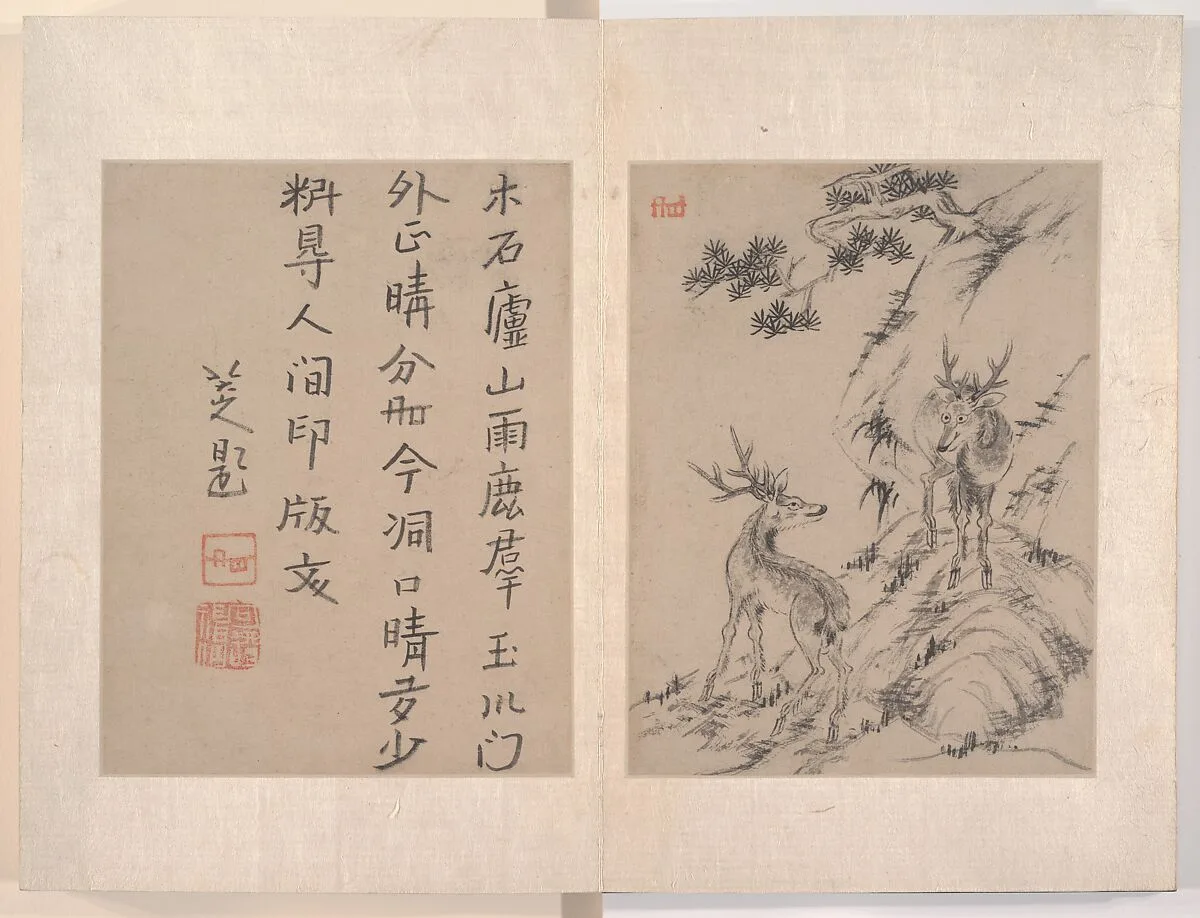 木石廬山雨鹿羣玉川门
外正晴分冊今洞口晴多少
料㝵人间印版
八大題